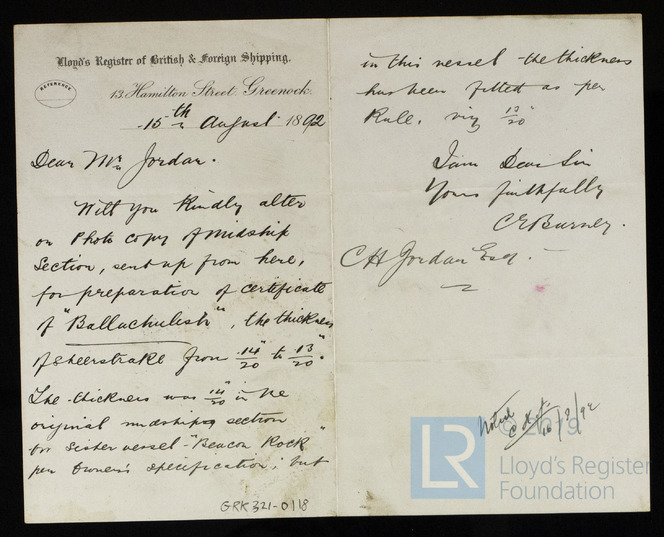 Lloyd's Register of British & Foreign Shipping.
REFERENCE
13 Hamilton Street Greenock.
15th August 1892
Dear Mr Jordan.
Will you kindly alter
on Photo copy of Midship
Section, sent up from here,
for preparation of certificate
of "Ballachulish", the thickness
of sheerstrake from 14"/20 to 13"/20.
The thickness was 14"/20 in the
original midship section
for sister vessel "Beacon Rock"
per Owner's specification; but
GRK321-0118
in this vessel the thickness
has been fitted as per
Rule, viz 13"/20
I am Dear Sir
Yours faithfully
C E Burney.
C H Jordan Esq.
Noted
16/8/92
LR
Lloyd's Register
Foundation